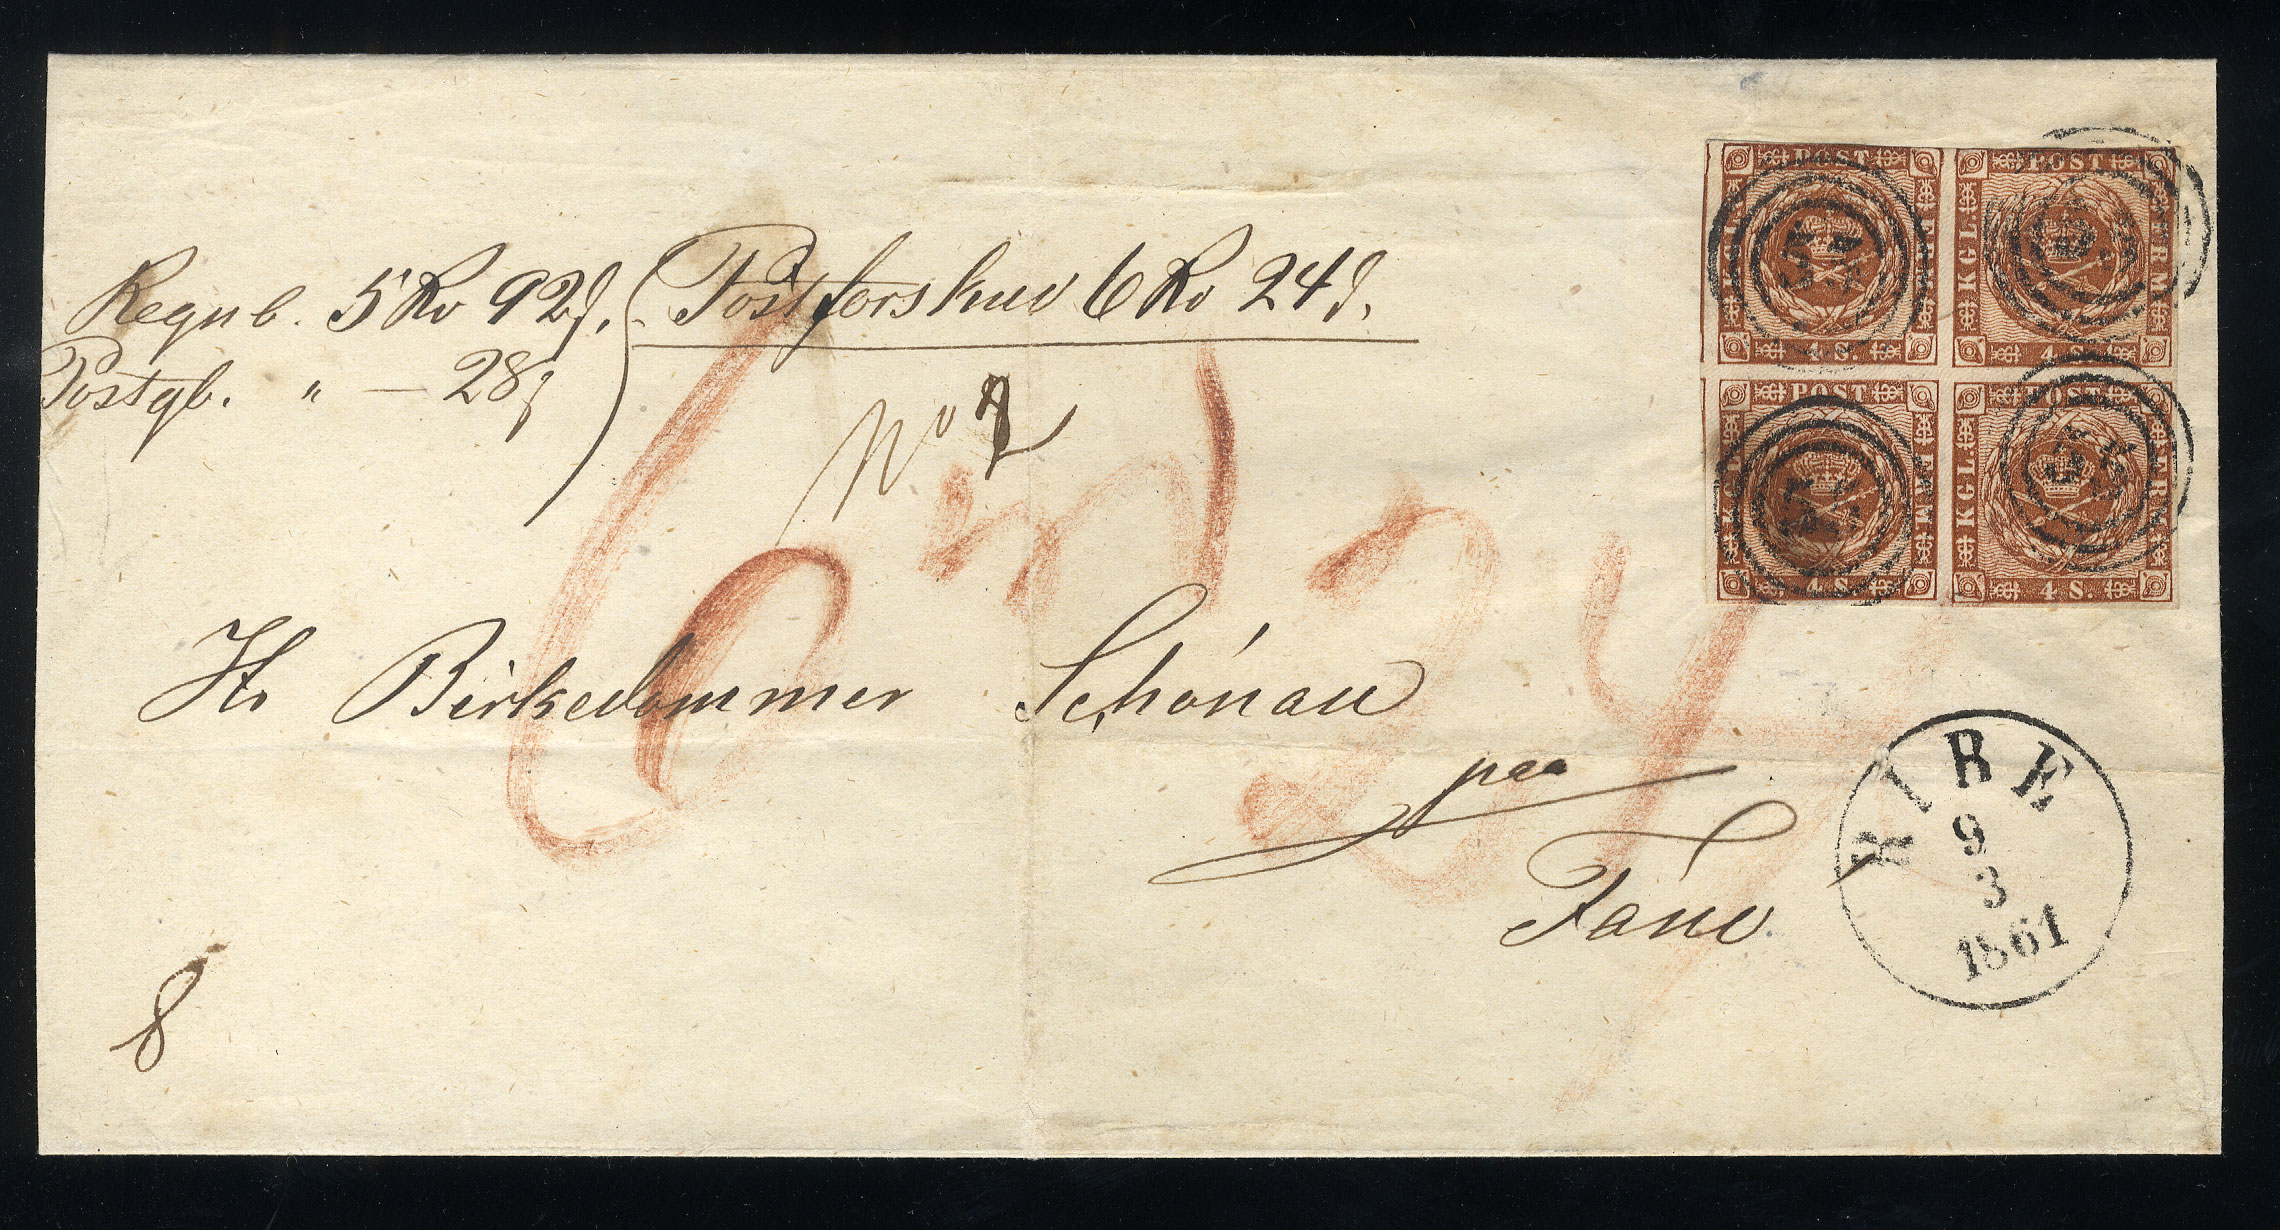 Regnb. 5 Rd 92 s. Postforskud 6 Rd 24 s.
Postgb. " — 28 s
No 2
6 24
Hr Birkedommer Schönau
paa
Fanø
8
KGL. POST FRM. 4 S.
KGL. POST FRM. 4 S.
KGL. POST FRM. 4 S.
KGL. POST FRM. 4 S.
RIBE
9
3
1861